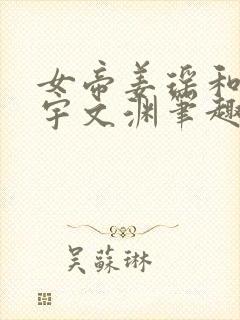 女帝姜瑶和
宇文渊笔趣
吴苏琳